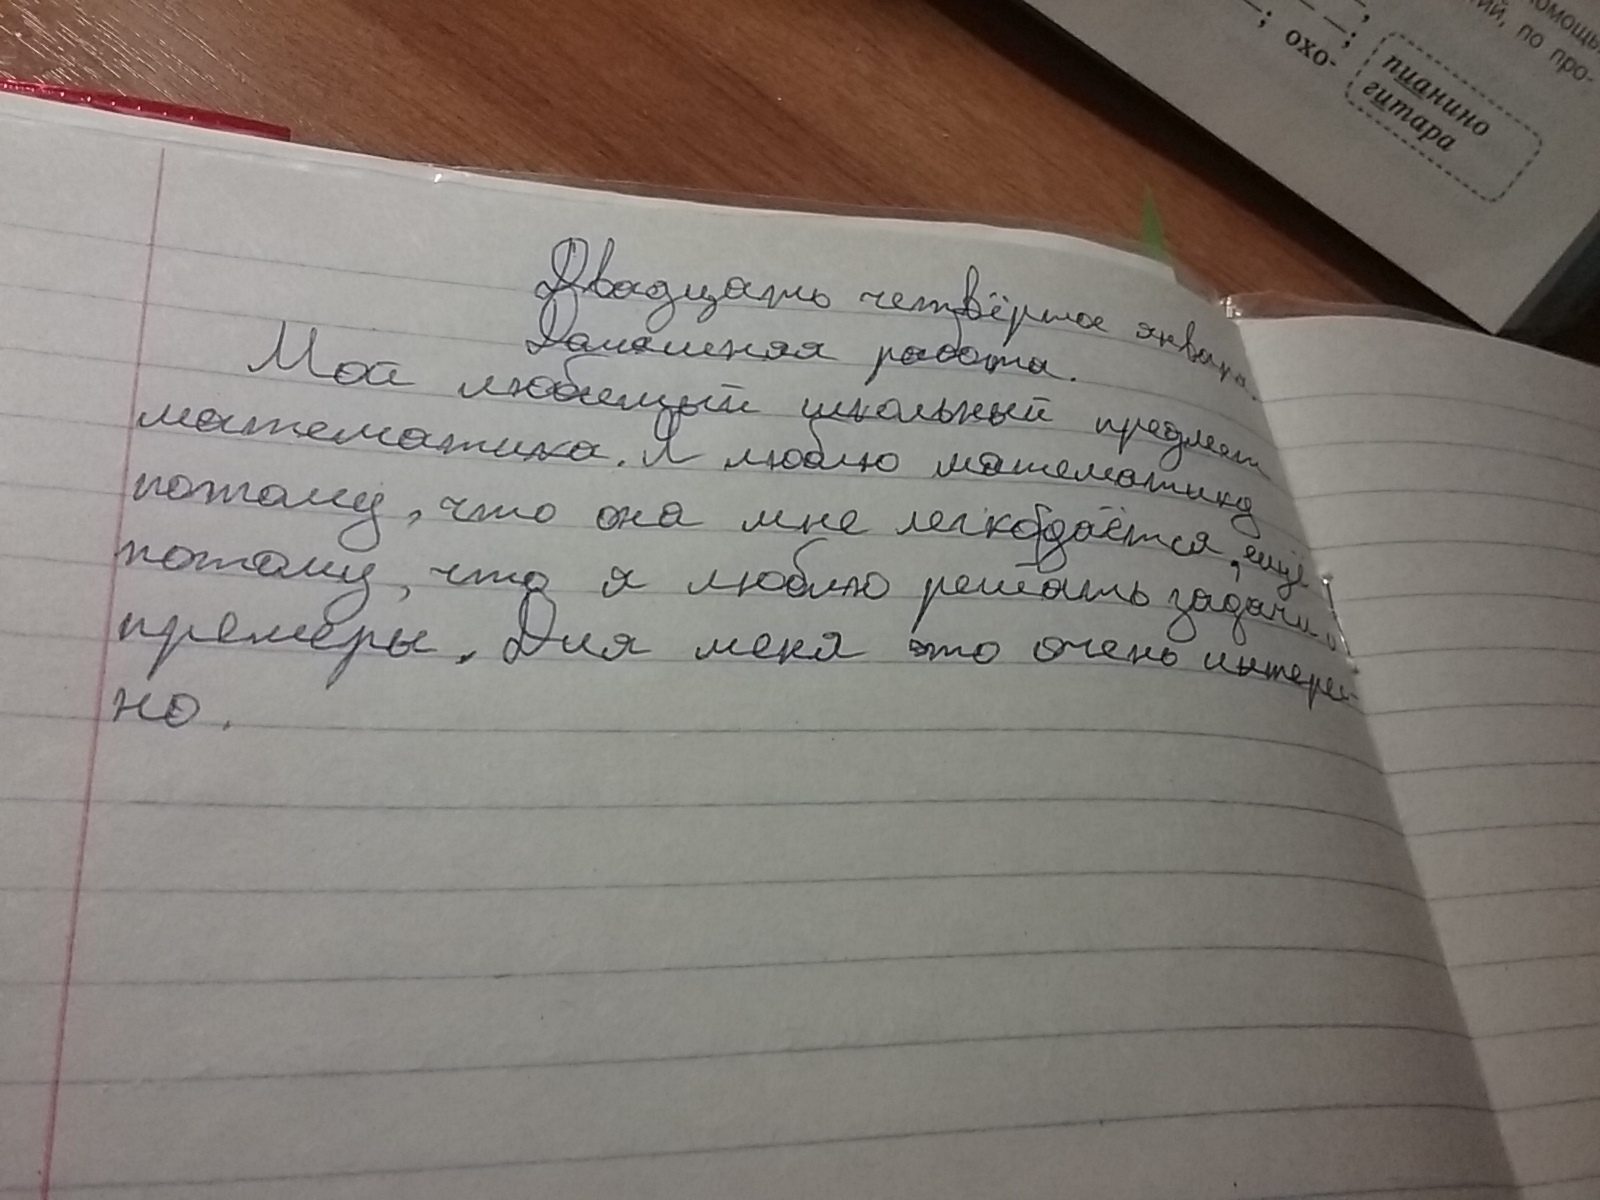 помощью
тий, по про-
—; охо-
пианино
гитара
Двадцать четвёртое января.
Домашняя работа.
Мой любимый школьный предмет
математика. Я люблю математику
потому, что она мне легко даётся, ещё
потому, что я люблю решать задачи и
премеры. Для меня это очень интерес-
но.